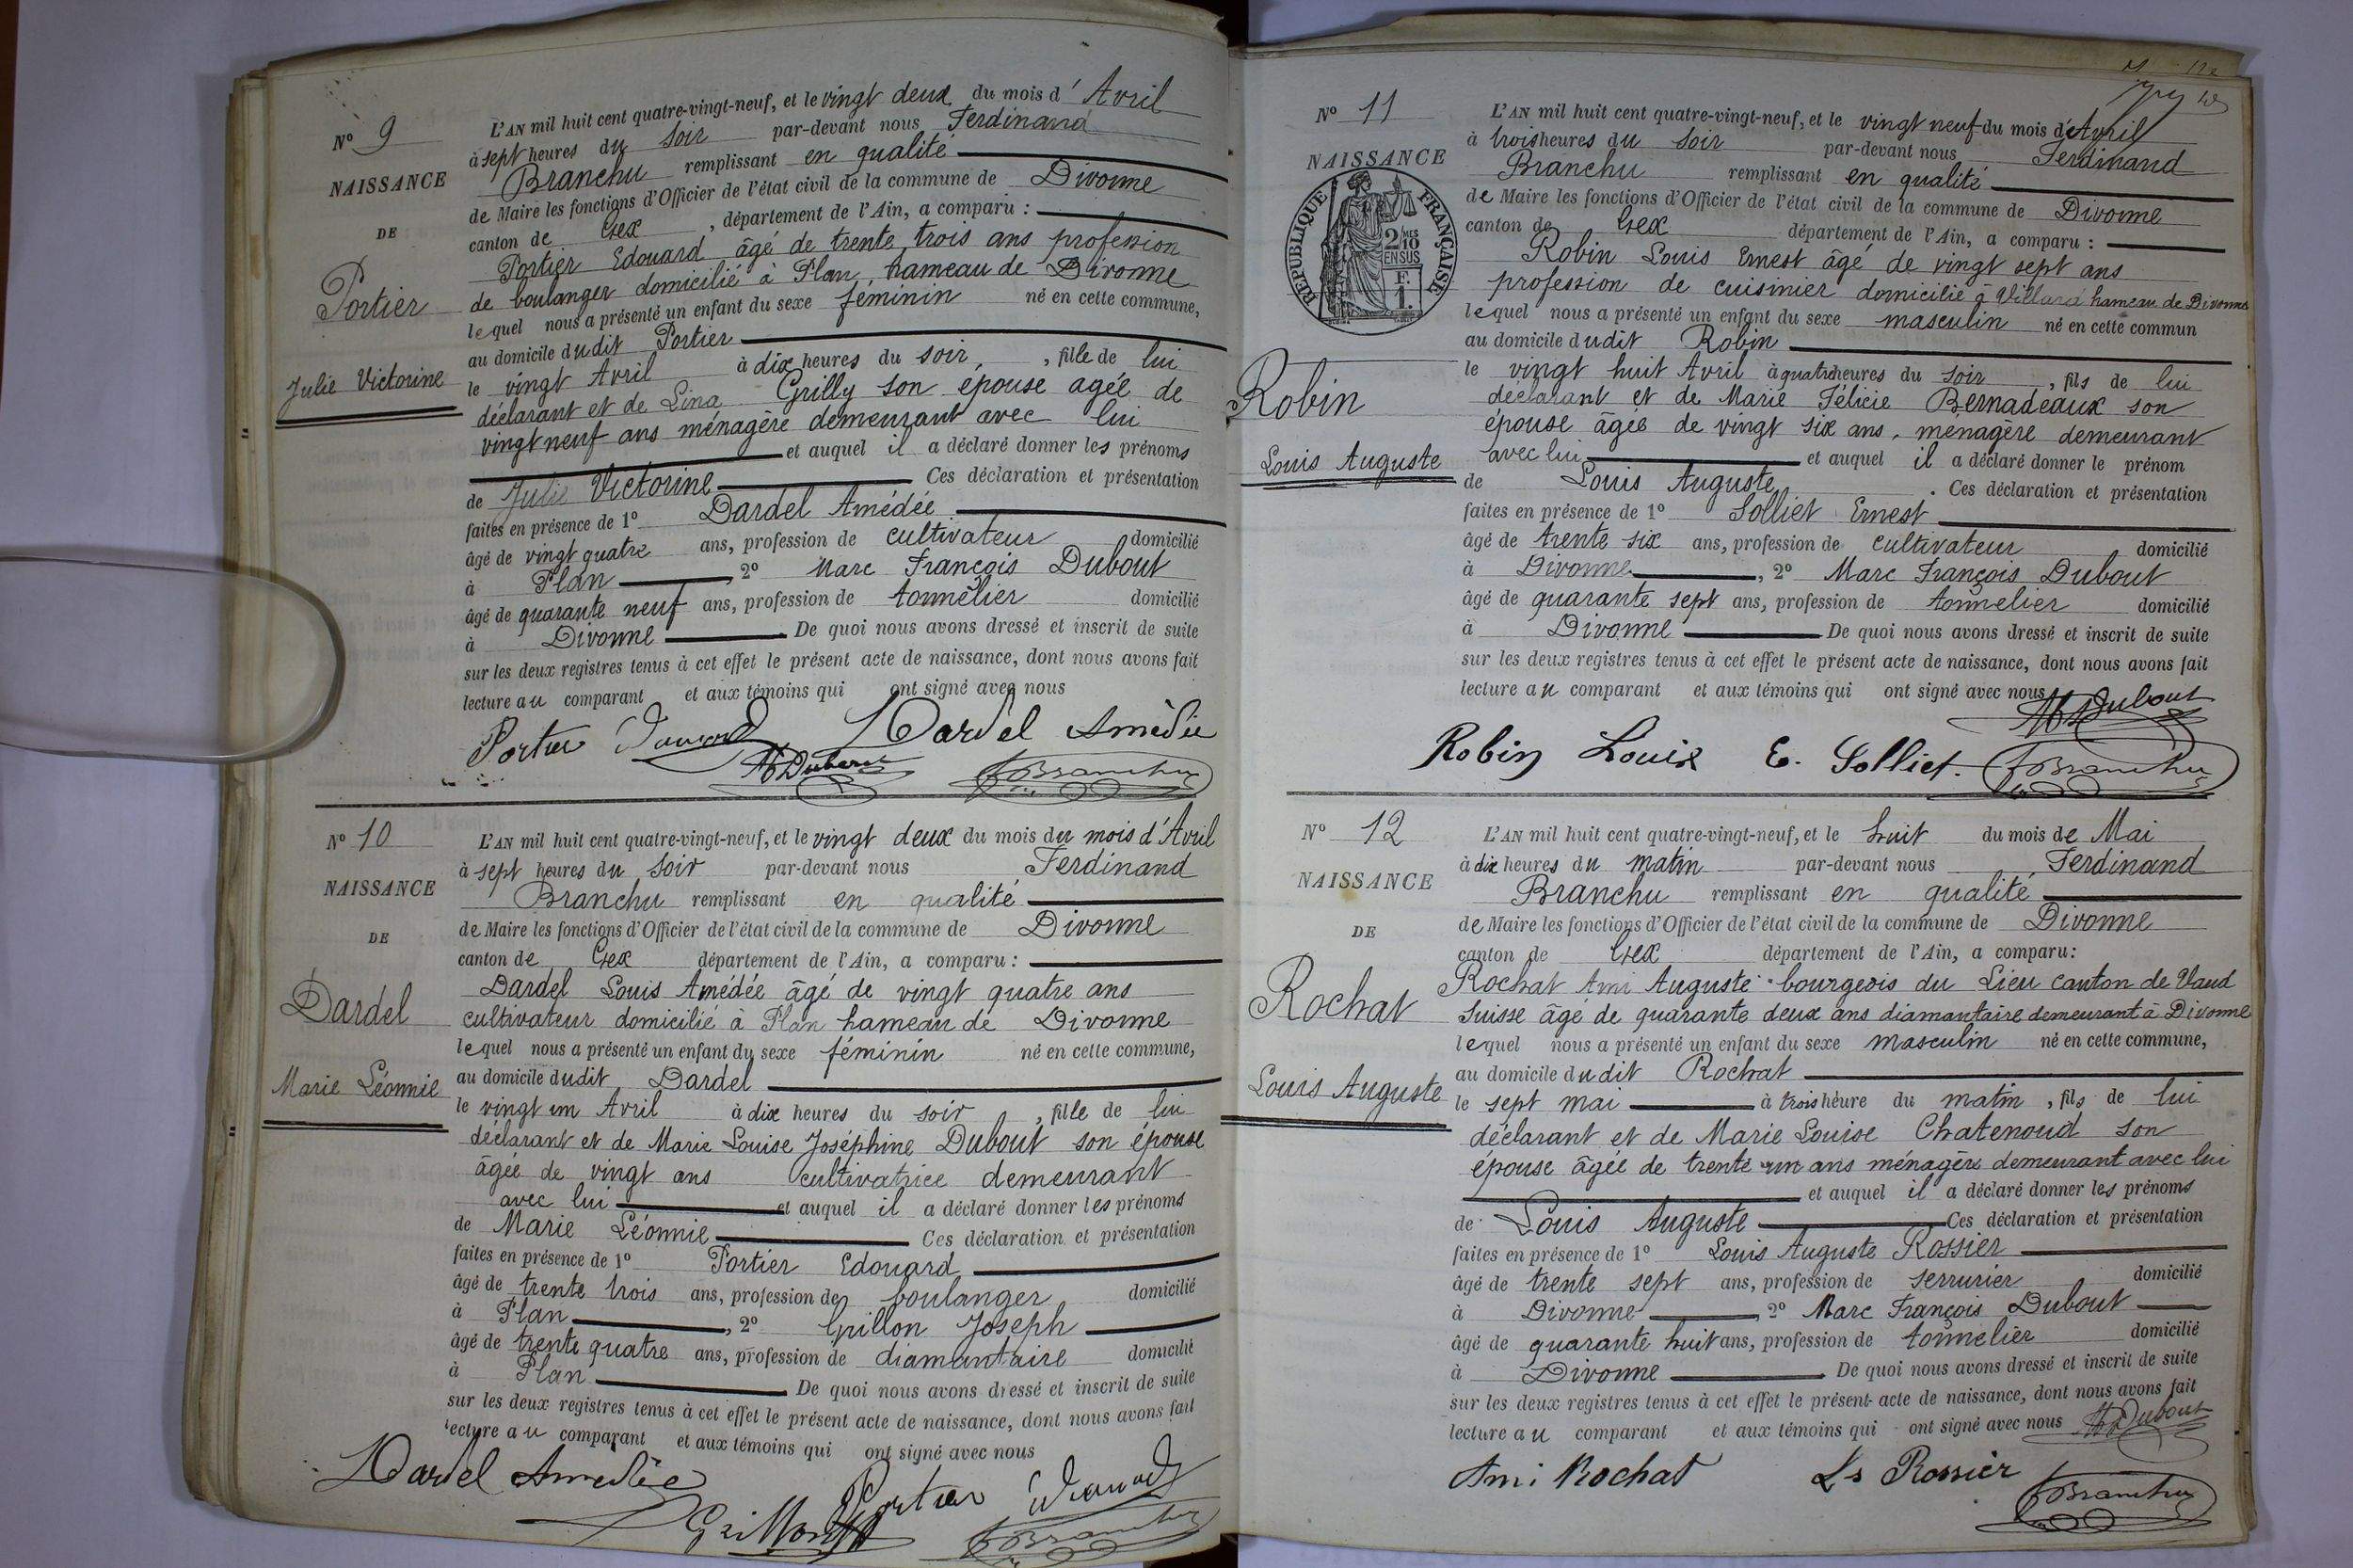 N° 9
NAISSANCE
DE
Portier
Julie Victorine
L'AN mil huit cent quatre-vingt-neuf, et le vingt deux du mois d' Avril
à sept heures du soir par-devant nous Ferdinand
Branchu remplissant en qualité
de Maire les fonctions d'Officier de l'état civil de la commune de Divonne
canton de Gex, département de l'Ain, a comparu :
Portier Edouard âgé de trente trois ans profession
de boulanger domicilié à Plan hameau de Divonne
lequel nous a présenté un enfant du sexe féminin né en cette commune,
au domicile dudit Portier
le vingt Avril à dix heures du soir, fille de lui
déclarant et de Lina Grilly son épouse agée de
vingt neuf ans ménagère demeurant avec lui
et auquel il a déclaré donner les prénoms
de Julie Victorine Ces déclaration et présentation
faites en présence de 1° Dardel Amédée
âgé de vingt quatre ans, profession de cultivateur domicilié
à Plan, 2° Marc François Dubout
âgé de quarante neuf ans, profession de tonnelier domicilié
à Divonne De quoi nous avons dressé et inscrit de suite
sur les deux registres tenus à cet effet le présent acte de naissance, dont nous avons fait
lecture au comparant et aux témoins qui ont signé avec nous
Portier Dardel Amédée
Branchu
N° 10
NAISSANCE
DE
Dardel
Marie Léonnie
L'AN mil huit cent quatre-vingt-neuf, et le vingt deux du mois du mois d'Avril
à sept heures du soir par-devant nous Ferdinand
Branchu remplissant en qualité
de Maire les fonctions d'Officier de l'état civil de la commune de Divonne
canton de Gex département de l'Ain, a comparu :
Dardel Louis Amédée âgé de vingt quatre ans
cultivateur domicilié à Plan hameau de Divonne
lequel nous a présenté un enfant du sexe féminin né en cette commune,
au domicile dudit Dardel
le vingt un Avril à dix heures du soir, fille de lui
déclarant et de Marie Louise Joséphine Dubout son épouse
âgée de vingt ans cultivatrice demeurant
avec lui et auquel il a déclaré donner les prénoms
de Marie Léonnie Ces déclaration et présentation
faites en présence de 1° Portier Edouard
âgé de trente trois ans, profession de boulanger domicilié
à Plan, 2° Grillon Joseph
âgé de trente quatre ans, profession de diamantaire domicilié
à Plan De quoi nous avons dressé et inscrit de suite
sur les deux registres tenus à cet effet le présent acte de naissance, dont nous avons fait
lecture au comparant et aux témoins qui ont signé avec nous
Dardel Amédée Portier
Branchu
N° 11
NAISSANCE
RÉPUBLIQUE FRANÇAISE
2/10 MES
EN SUS
F.
1.
Robin
Louis Auguste
L'AN mil huit cent quatre-vingt-neuf, et le vingt neuf du mois d'Avril
à trois heures du soir par-devant nous Ferdinand
Branchu remplissant en qualité
de Maire les fonctions d'Officier de l'état civil de la commune de Divonne
canton de Gex département de l'Ain, a comparu :
Robin Louis Ernest âgé de vingt sept ans
profession de cuisinier domicilié à Villard hameau de Divonne
lequel nous a présenté un enfant du sexe masculin né en cette commun
au domicile dudit Robin
le vingt huit Avril à quatre heures du soir, fils de lui
déclarant et de Marie Félicie Bernadeaux son
épouse âgée de vingt six ans, menagère demeurant
avec lui et auquel il a déclaré donner le prénom
de Louis Auguste. Ces déclaration et présentation
faites en présence de 1° Solliet Ernest
âgé de trente six ans, profession de cultivateur domicilié
à Divonne, 2° Marc François Dubout
âgé de quarante sept ans, profession de tonnelier domicilié
à Divonne De quoi nous avons dressé et inscrit de suite
sur les deux registres tenus à cet effet le présent acte de naissance, dont nous avons fait
lecture au comparant et aux témoins qui ont signé avec nous
Dubout
Robin Louis E. Solliet. Branchu
N° 12
NAISSANCE
DE
Rochat
Louis Auguste
L'AN mil huit cent quatre-vingt-neuf, et le huit du mois de Mai
à dix heures du matin par-devant nous Ferdinand
Branchu remplissant en qualité
de Maire les fonctions d'Officier de l'état civil de la commune de Divonne
canton de Gex département de l'Ain, a comparu:
Rochat Ami Auguste bourgeois du Lieu canton de Vaud
Suisse âgé de quarante deux ans diamantaire demeurant à Divonne
lequel nous a présenté un enfant du sexe masculin né en cette commune,
au domicile dudit Rochat
le sept mai à trois heure du matin, fils de lui
déclarant et de Marie Louise Chatenoud son
épouse âgée de trente un ans ménagère demeurant avec lui
et auquel il a déclaré donner les prénoms
de Louis Auguste Ces déclaration et présentation
faites en présence de 1° Louis Auguste Rossier
âgé de trente sept ans, profession de serrurier domicilié
à Divonne 2° Marc François Dubout
âgé de quarante huit ans, profession de tonnelier domicilié
à Divonne De quoi nous avons dressé et inscrit de suite
sur les deux registres tenus à cet effet le présent acte de naissance, dont nous avons fait
lecture au comparant et aux témoins qui ont signé avec nous Dubout
Ami Rochat Ls Rossier
Branchu